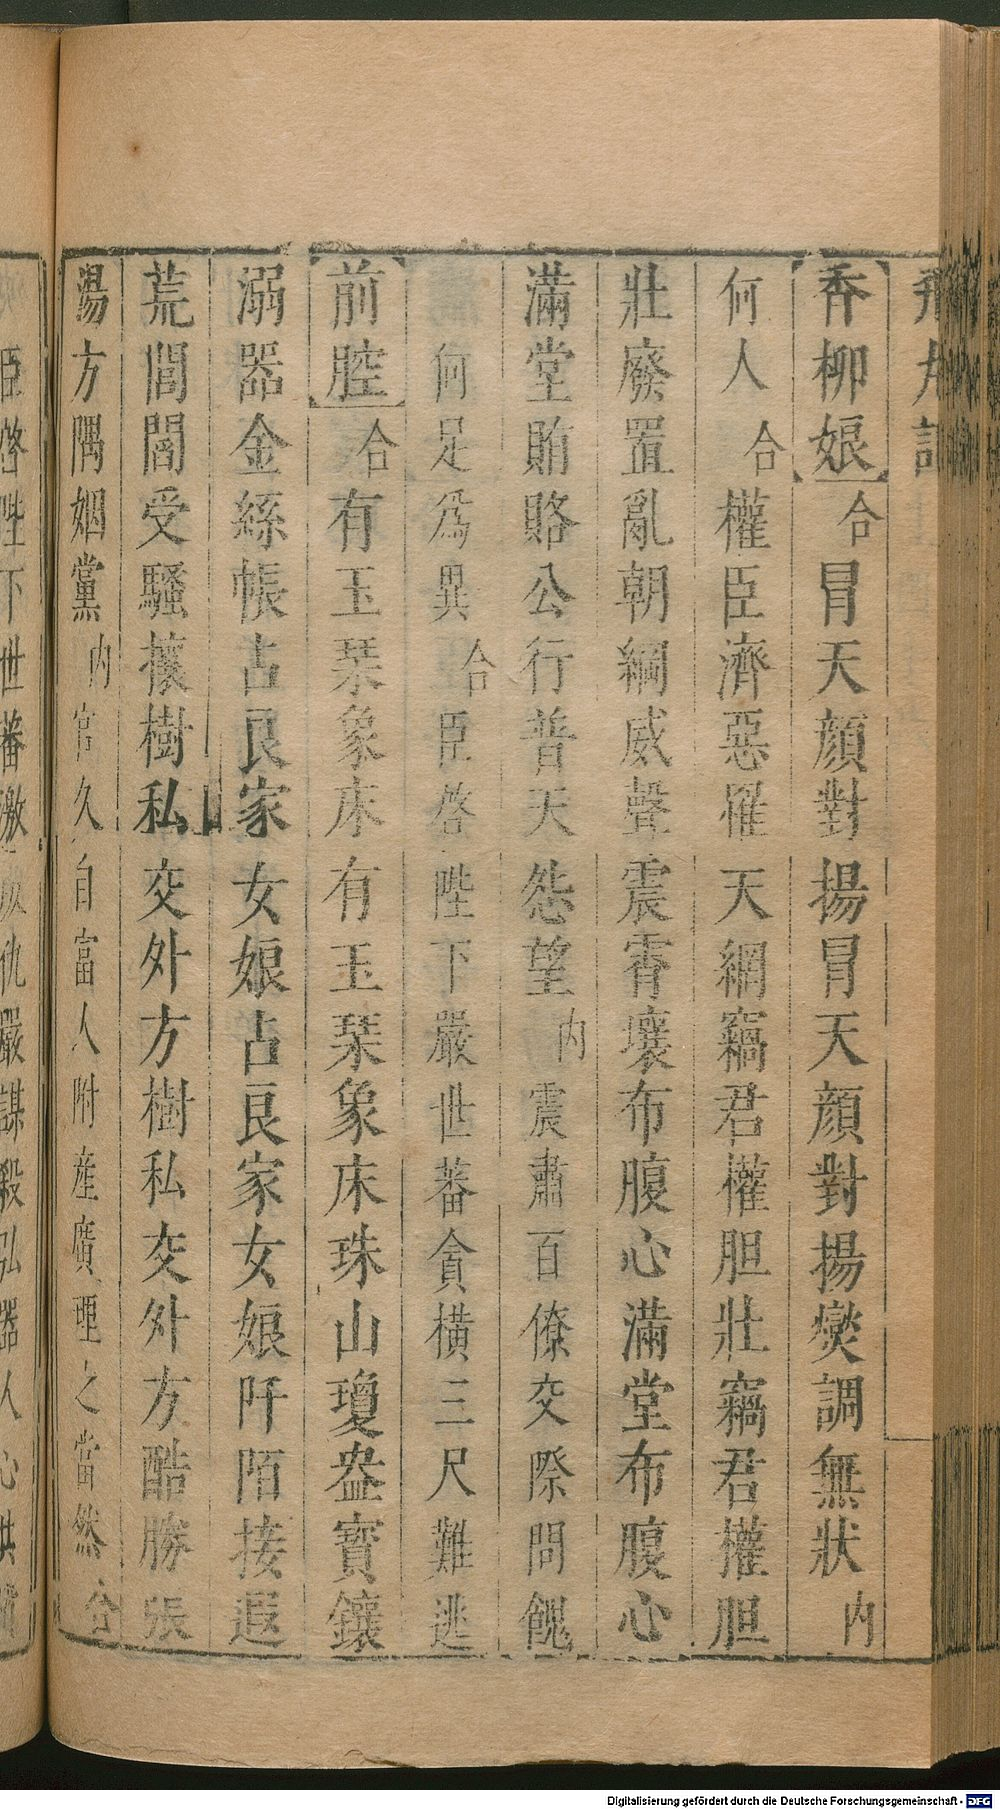 飛丸記
香柳娘合冒天顏對揚冒天顏對揚爕調無狀内
何人合權臣濟惡罹天網竊君權胆壯竊君權胆
壯廢置亂朝綱威聲震霄壤布腹心滿堂布腹心
滿堂賄賂公行普天怨望内震肅百僚交際問餽
何足爲異合臣啓陛下嚴世蕃貪橫三尺難逃
前腔合有玉棊象床有玉棊象床珠山瓊盎寳鑲
溺器金絲帳占良家女娘占良家女娘阡陌接遐
荒閭閻受騷攘樹私交外方樹私交外方酷勝張
湯方隅姻黨内官久自富人附産廣理之當然合
臣啓陛下世蕃激成仇嚴謀殺弘器人心共
Digitalisierung gefördert durch die Deutsche Forschungsgemeinschaft - DFG